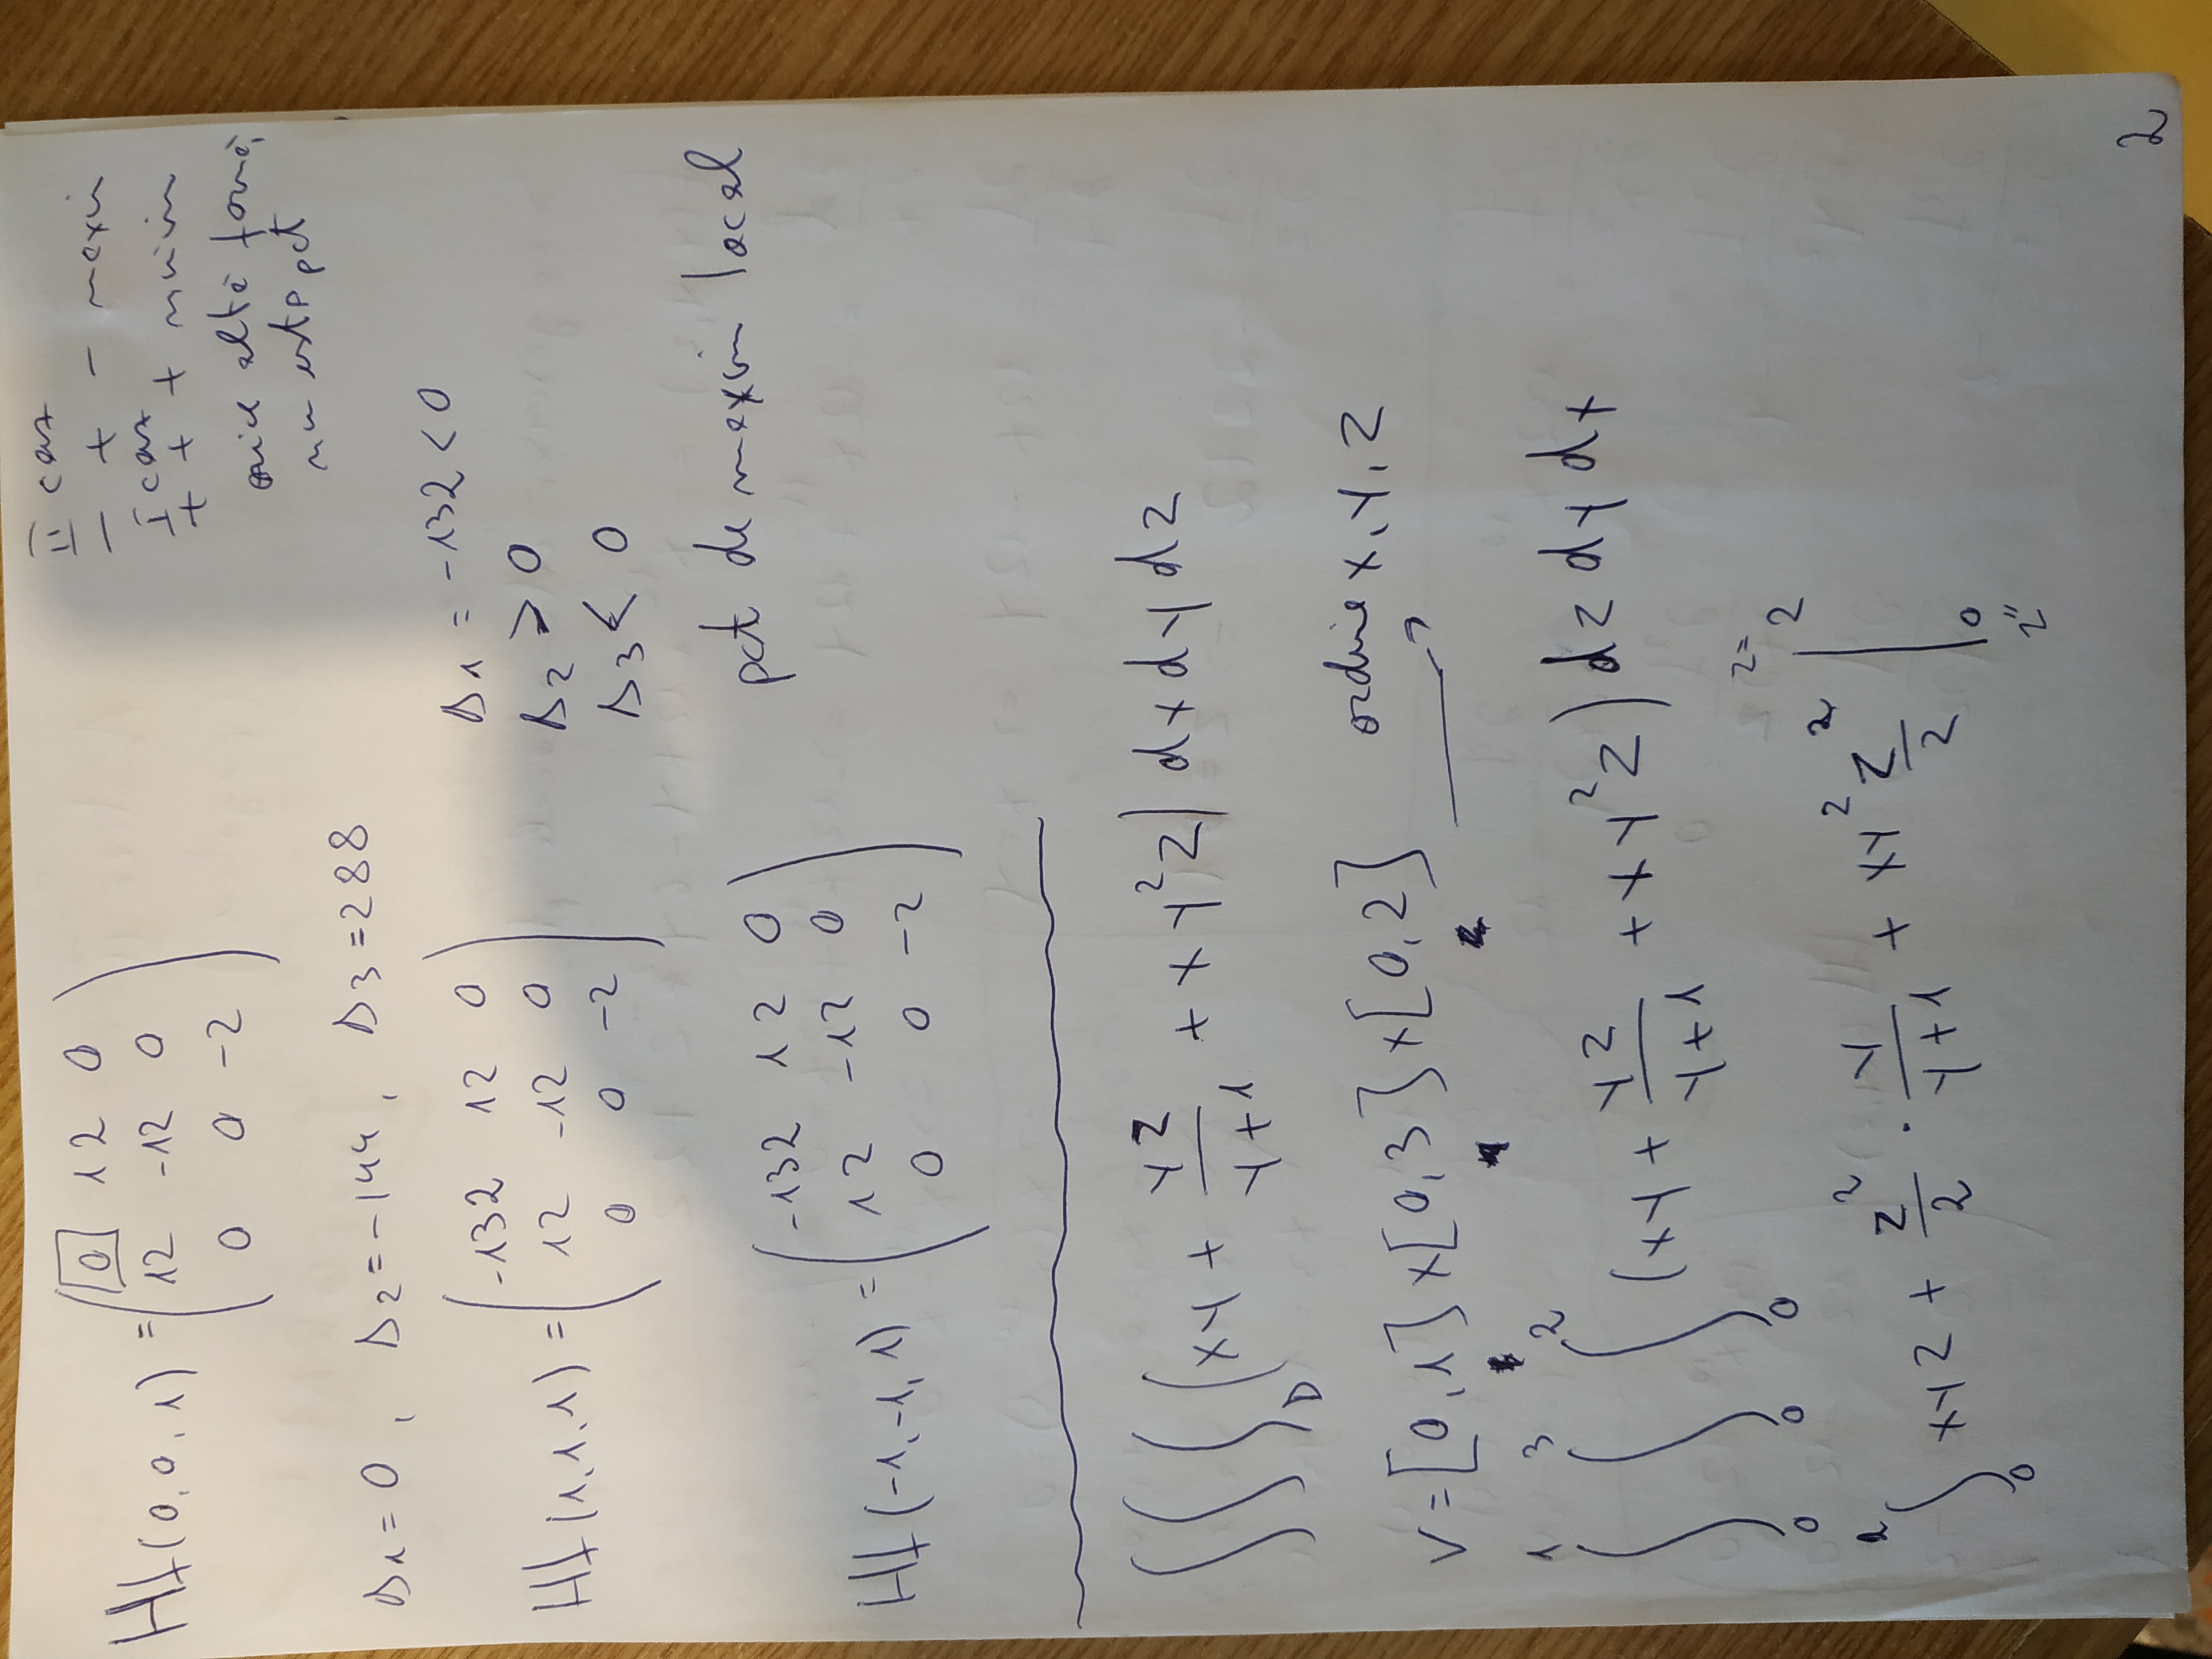 Hf(0,0,1) = ( 0 12 0
12 -12 0
0 0 -2 )
II caz
- + - maxim
I caz
+ + + minim
orice altă formă,
nu este pct
Δ1 = 0, Δ2 = -144, Δ3 = 288
Hf(1,1,1) = ( -132 12 0
12 -12 0
0 0 -2 )
Δ1 = -132 < 0
Δ2 > 0
Δ3 < 0
pct de maxim local
Hf(-1,-1,1) = ( -132 12 0
12 -12 0
0 0 -2 )
∫∫∫_D (xy + yz/(y+1) + xy²z) dx dy dz
V = [0,1] x [0,3] x [0,2] → ordine x, y, z
∫₀¹ ∫₀³ ∫₀² (xy + yz/(y+1) + xy²z) dz dy dx
∫₀² xyz + z²/2 · y/(y+1) + xy² z²/2 |_{z=0}^{z=2}
2